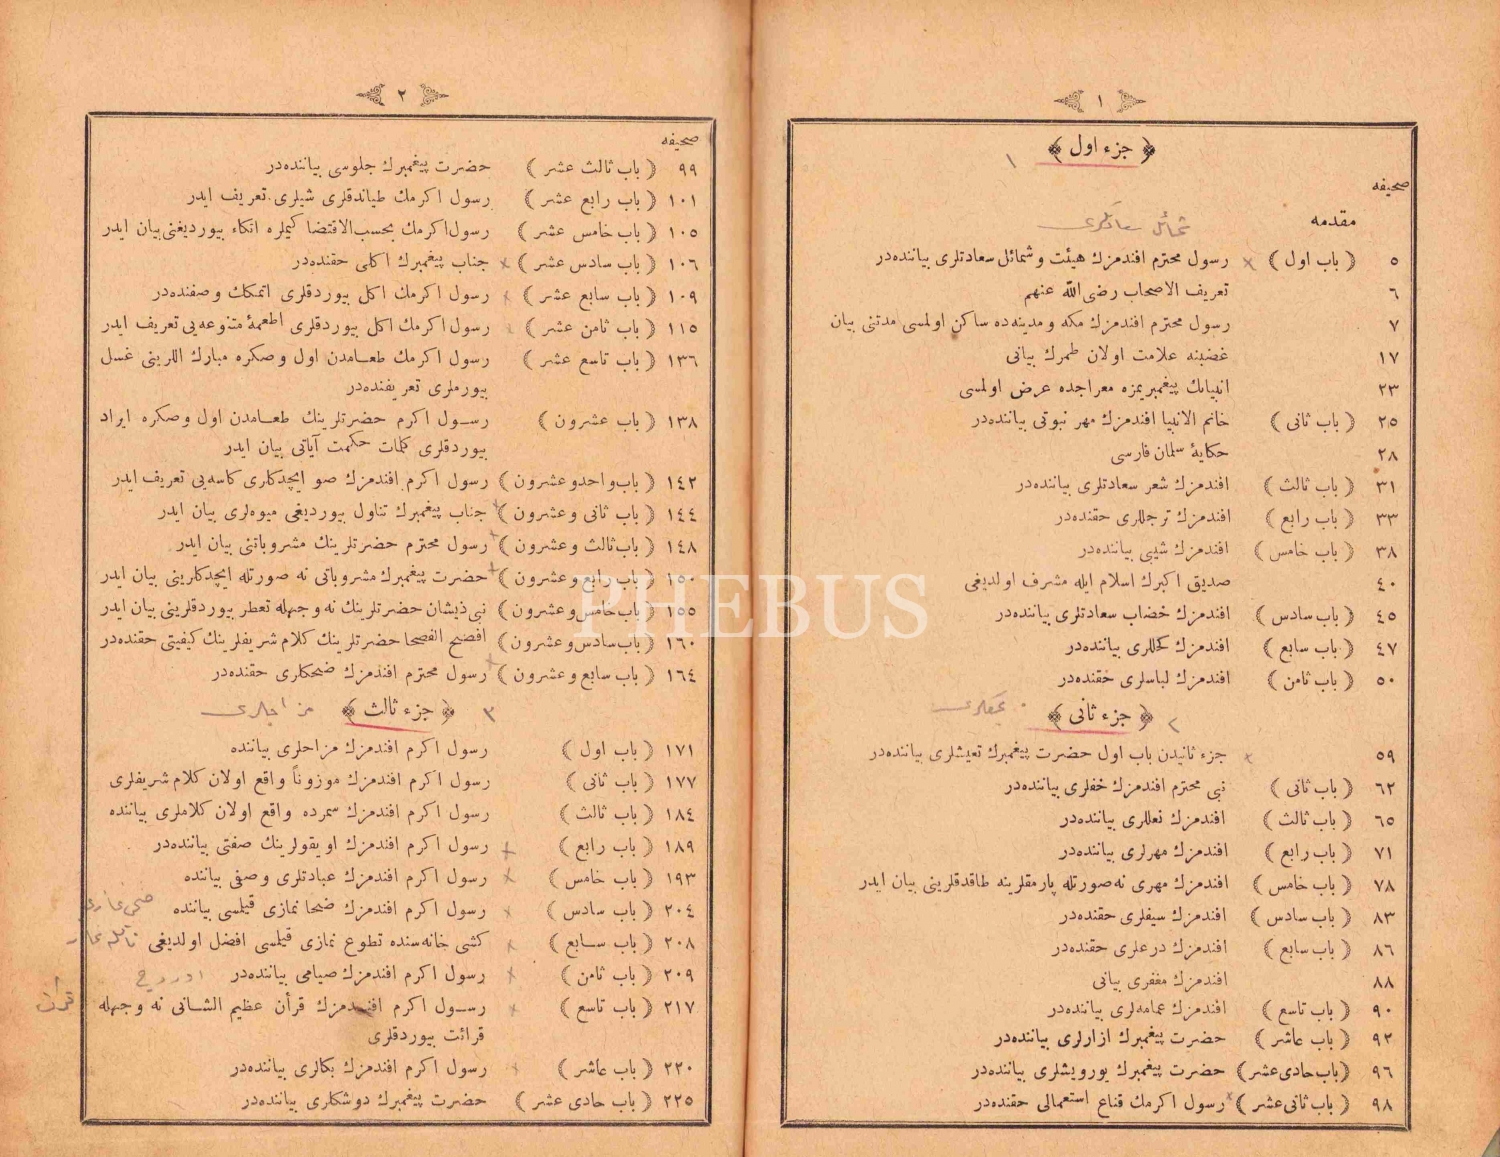 ١
﴿ جزء اول ﴾ ١
صحيفه
مقدمه
شمائل سعادتلرى
٥ ( باب اول ) رسول محترم افندمزك هيئت و شمائل سعادتلرى بياننده‌در
٦ تعريف الاصحاب رضى الله عنهم
٧ رسول محترم افندمزك مكه و مدينه‌ده ساكن اولمسى مدتنى بيان
١٧ غضبنه علامت اولان طمرك بيانى
٢٣ انبيانك پيغمبريمزه معراجده عرض اولمسى
٢٥ ( باب ثانى ) خاتم الانبيا افندمزك مهر نبوتى بياننده‌در
٢٨ حكايهٔ سلمان فارسى
٣١ ( باب ثالث ) افندمزك شعر سعادتلرى بياننده‌در
٣٣ ( باب رابع ) افندمزك ترجللرى حقنده‌در
٣٨ ( باب خامس ) افندمزك شيبى بياننده‌در
٤٠ صديق اكبرك اسلام ايله مشرف اولديغى
٤٥ ( باب سادس ) افندمزك خضاب سعادتلرى بياننده‌در
٤٧ ( باب سابع ) افندمزك كحللرى بياننده‌در
٥٠ ( باب ثامن ) افندمزك لباسلرى حقنده‌در
﴿ جزء ثانى ﴾ ٢
٥٩ جزء ثانيدن باب اول حضرت پيغمبرك تعيشلرى بياننده‌در
٦٢ ( باب ثانى ) نبى محترم افندمزك خفلرى بياننده‌در
٦٥ ( باب ثالث ) افندمزك نعللرى بياننده‌در
٧١ ( باب رابع ) افندمزك مهرلرى بياننده‌در
٧٨ ( باب خامس ) افندمزك مهرى نه‌صورتله پارمقلرينه طاقدقلرينى بيان ايدر
٨٣ ( باب سادس ) افندمزك سيفلرى حقنده‌در
٨٦ ( باب سابع ) افندمزك درعلرى حقنده‌در
٨٨ افندمزك مغفرى بيانى
٩٠ ( باب تاسع ) افندمزك عمامه‌لرى بياننده‌در
٩٢ ( باب عاشر ) حضرت پيغمبرك ازارلرى بياننده‌در
٩٦ ( باب حادى عشر ) حضرت پيغمبرك يورويشلرى بياننده‌در
٩٨ ( باب ثانى عشر ) رسول اكرمك قناع استعمالى حقنده‌در
٢
صحيفه
٩٩ ( باب ثالث عشر ) حضرت پيغمبرك جلوسى بياننده‌در
١٠١ ( باب رابع عشر ) رسول اكرمك طياندقلرى شيلرى تعريف ايدر
١٠٥ ( باب خامس عشر ) رسول اكرمك بحسب الاقتضا كيملره اتكاء بيورديغنى بيان ايدر
١٠٦ ( باب سادس عشر ) جناب پيغمبرك اكلى حقنده‌در
١٠٩ ( باب سابع عشر ) رسول اكرمك اكل بيوردقلرى اتمكك وصفنده‌در
١١٥ ( باب ثامن عشر ) رسول اكرمك اكل بيوردقلرى اطعمهٔ متنوعه‌يى تعريف ايدر
١٣٦ ( باب تاسع عشر ) رسول اكرمك طعامدن اول و صكره مبارك اللرينى غسل
بيورملرى تعريفنده‌در
١٣٨ ( باب عشرون ) رسول اكرم حضرتلرينك طعامدن اول و صكره ايراد
بيوردقلرى كلمات حكمت آياتى بيان ايدر
١٤٢ ( باب واحد و عشرون ) رسول اكرم افندمزك صو ايچدكارى كاسه‌يى تعريف ايدر
١٤٤ ( باب ثانى و عشرون ) جناب پيغمبرك تناول بيورديغى ميوه‌لرى بيان ايدر
١٤٨ ( باب ثالث و عشرون ) رسول محترم حضرتلرينك مشروباتنى بيان ايدر
١٥٠ ( باب رابع و عشرون ) حضرت پيغمبرك مشروباتى نه صورتله ايچدكلرينى بيان ايدر
١٥٥ ( باب خامس و عشرون ) نبى ذيشان حضرتلرينك نه وجهله تعطر بيوردقلرينى بيان ايدر
١٦٠ ( باب سادس و عشرون ) افصح الفصحا حضرتلرينك كلام شريفلرينك كيفيتى حقنده‌در
١٦٤ ( باب سابع و عشرون ) رسول محترم افندمزك ضحكارى حقنده‌در
٣ ﴿ جزء ثالث ﴾ مزاحلرى
١٧١ ( باب اول ) رسول اكرم افندمزك مزاحلرى بياننده
١٧٧ ( باب ثانى ) رسول اكرم افندمزك موزوناً واقع اولان كلام شريفلرى
١٨٤ ( باب ثالث ) رسول اكرم افندمزك سمرده واقع اولان كلاملرى بياننده
١٨٩ ( باب رابع ) رسول اكرم افندمزك اويقولرينك صفتى بياننده‌در
١٩٣ ( باب خامس ) رسول اكرم افندمزك عبادتلرى وصفى بياننده
٢٠٤ ( باب سادس ) رسول اكرم افندمزك ضحا نمازى قيلمسى بياننده
٢٠٨ ( باب سابع ) كشى خانه‌سنده تطوع نمازى قيلمسى افضل اولديغى
٢٠٩ ( باب ثامن ) رسول اكرم افندمزك صيامى بياننده‌در
٢١٧ ( باب تاسع ) رسول اكرم افندمزك قرأن عظيم الشانى نه وجهله قرآن
قرائت بيوردقلرى
٢٢٠ ( باب عاشر ) رسول اكرم افندمزك بكالرى بياننده‌در
٢٢٥ ( باب حادى عشر ) حضرت پيغمبرك دوشكارى بياننده‌در
PHEBUS